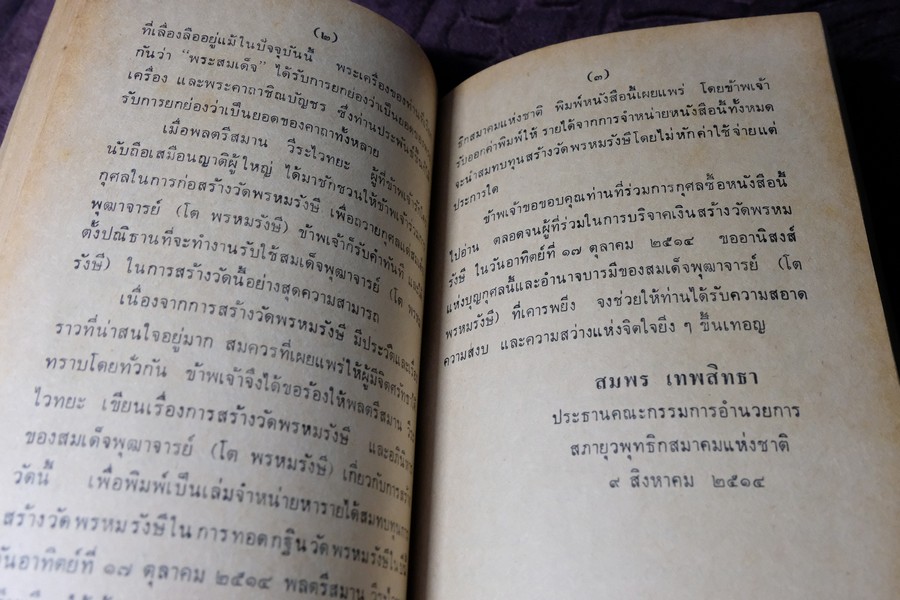 (๒)
ที่เลื่องลืออยู่แม้ในปัจจุบันนี้ พระเครื่องของท่าน
กันว่า “พระสมเด็จ” ได้รับการยกย่องว่าเป็นยอด
เครื่อง และพระคาถาชิณบัญชร ซึ่งท่านประพันธ์ขึ้น
รับการยกย่องว่าเป็นยอดของคาถาทั้งหลาย
เมื่อพลตรีสมาน วีระไวทยะ ผู้ที่ข้าพเจ้า
นับถือเสมือนญาติผู้ใหญ่ ได้มาชักชวนให้ข้าพเจ้าร่วม
กุศลในการก่อสร้างวัดพรหมรังษี เพื่อถวายกุศลแด่
พุฒาจารย์ (โต พรหมรังษี) ข้าพเจ้าก็รับคำทันที
ตั้งปณิธานที่จะทำงานรับใช้สมเด็จพุฒาจารย์ (โต
รังษี) ในการสร้างวัดนี้อย่างสุดความสามารถ
เนื่องจากการสร้างวัดพรหมรังษี มีประวัติและ
ราวที่น่าสนใจอยู่มาก สมควรที่เผยแพร่ให้ผู้มีจิตศรัทธาได้
ทราบโดยทั่วกัน ข้าพเจ้าจึงได้ขอร้องให้พลตรีสมาน
ไวทยะ เขียนเรื่องการสร้างวัดพรหมรังษี
ของสมเด็จพุฒาจารย์ (โต พรหมรังษี) เกี่ยวกับการ
วัดนี้ เพื่อพิมพ์เป็นเล่มจำหน่ายหารายได้สมทบทุน
สร้างวัดพรหมรังษีในการทอดกฐินวัดพรหมรังษีใน
วันอาทิตย์ที่ ๑๗ ตุลาคม ๒๕๑๔ พลตรีสมาน
(๓)
ธิกสมาคมแห่งชาติ พิมพ์หนังสือนี้เผยแพร่ โดยข้าพเจ้า
รับออกค่าพิมพ์ให้ รายได้จากการจำหน่ายหนังสือนี้ทั้งหมด
จะนำสมทบทุนสร้างวัดพรหมรังษีโดยไม่หักค่าใช้จ่ายแต่
ประการใด
ข้าพเจ้าขอขอบคุณท่านที่ร่วมการกุศลซื้อหนังสือนี้
ไปอ่าน ตลอดจนผู้ที่ร่วมในการบริจาคเงินสร้างวัดพรหม
รังษี ในวันอาทิตย์ที่ ๑๗ ตุลาคม ๒๕๑๔ ขออานิสงส์
แห่งบุญกุศลนี้และอำนาจบารมีของสมเด็จพุฒาจารย์ (โต
พรหมรังษี) ที่เคารพยิ่ง จงช่วยให้ท่านได้รับความสอาด
ความสงบ และความสว่างแห่งจิตใจยิ่ง ๆ ขึ้นเทอญ
สมพร เทพสิทธา
ประธานคณะกรรมการอำนวยการ
สภายุวพุทธิกสมาคมแห่งชาติ
๙ สิงหาคม ๒๕๑๔